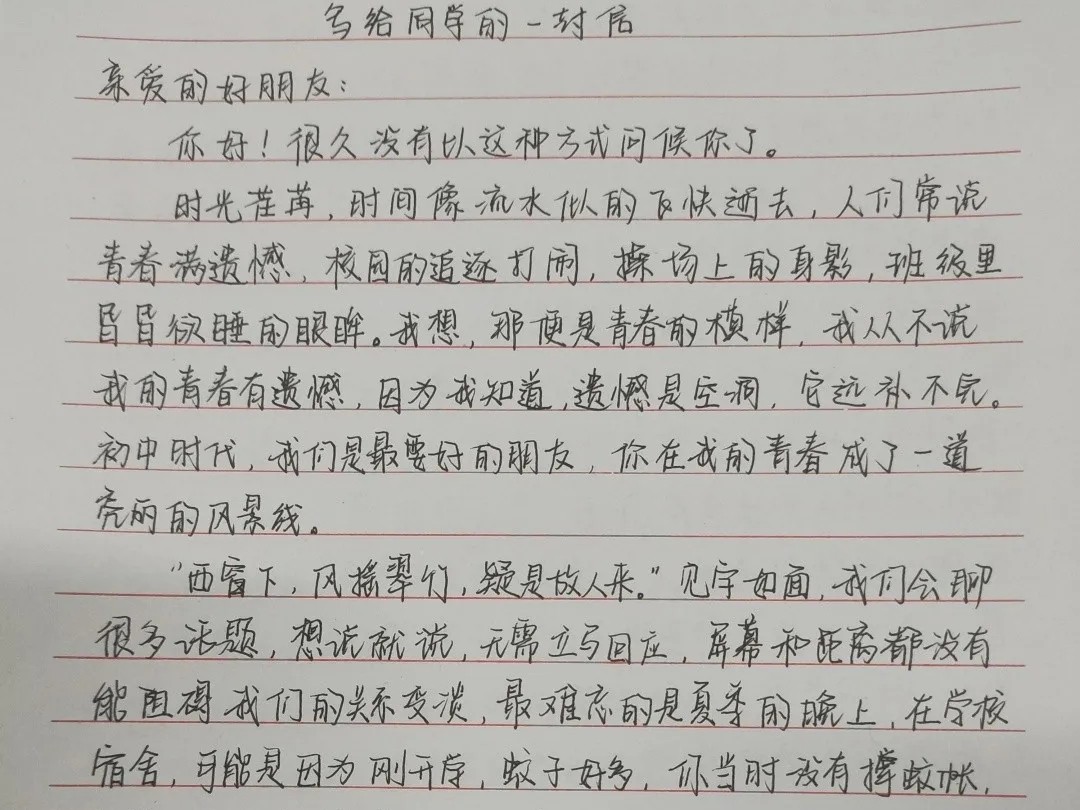 写给同学的一封信
亲爱的好朋友：
你好！很久没有以这种方式问候你了。
时光荏苒，时间像流水似的飞快逝去，人们常说
青春满遗憾，校园的追逐打闹，操场上的身影，班级里
昏昏欲睡的眼眸。我想，那便是青春的模样，我从不说
我的青春有遗憾，因为我知道，遗憾是空洞，它远补不完。
初中时代，我们是最要好的朋友，你在我的青春成了一道
亮丽的风景线。
“西窗下，风摇翠竹，疑是故人来。”见字如面，我们会聊
很多话题，想说就说，无需立马回应，屏幕和距离都没有
能阻碍我们的关系变淡，最难忘的是夏季的晚上，在学校
宿舍，可能是因为刚开学，蚊子好多，你当时没有撑蚊帐，